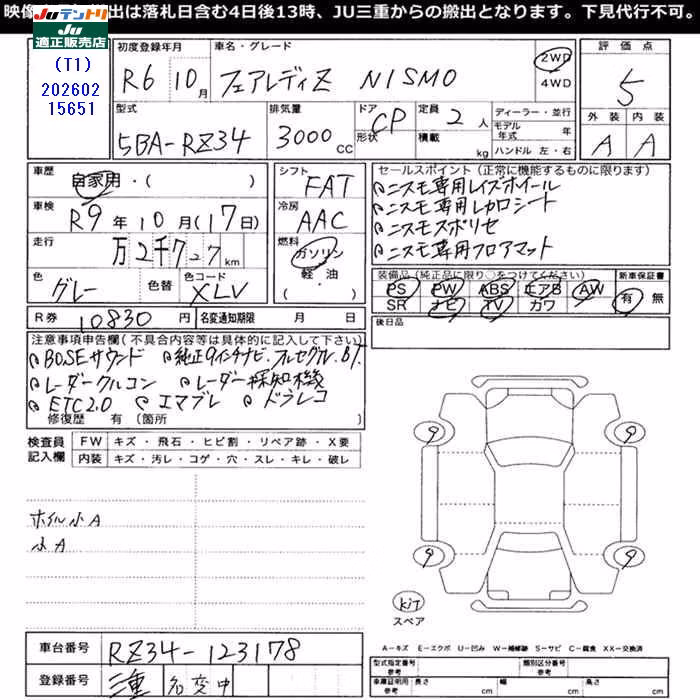 映像 出は落札日含む4日後13時、JU三重からの搬出となります。下見代行不可。
JUテントリ
Ju
適正販売店
(T1)
202602
15651
初度登録年月 車名・グレード 評価点
R6 10月 フェアレディZ NISMO 2WD 4WD 5
型式 排気量 ドア形状 定員 2人 積載 kg ディーラー・並行 外装 内装
5BA-RZ34 3000CC CP モデル年式 年 ハンドル 左・右 A A
車歴 自家用・( ) シフト FAT
車検 R9年10月(17日) 冷房 AAC
走行 万2千727km 燃料 ガソリン 軽・油 ・( )
色 グレー 色替 色コード XLV
R券 10830円 名変通知期限 月 日
セールスポイント(正常に機能するものに限ります)
ニスモ専用レイズホイール
ニスモ専用レカロシート
ニスモスポリセ
ニスモ専用フロアマット
装備品(純正品に限り○をつけてください) 新車保証書
PS PW ABS エアB AW 有 無
SR ナビ TV カワ
後日品
注意事項申告欄(不具合内容等は具体的に記入して下さい)
BOSEサウンド 純正9インチナビ.フルセグTV.BT.
レーダークルコン レーダー探知機
ETC2.0 エマブレ ドラレコ
修復歴 有(箇所 )
検査員記入欄 FW キズ・飛石・ヒビ割・リペア跡・X要
内装 キズ・汚レ・コゲ・穴・スレ・キレ・破レ
ホイル小A
小A
9 9
9 9
kit
スペア
A…キズ E…エクボ U…凹み W…補修跡 S…サビ C…腐食 XX…交換済
車台番号 RZ34-123178
登録番号 三重 名変中
型式指定番号 類別区分番号
参考
車庫証明用 長さ cm 幅 cm 高さ cm
参考